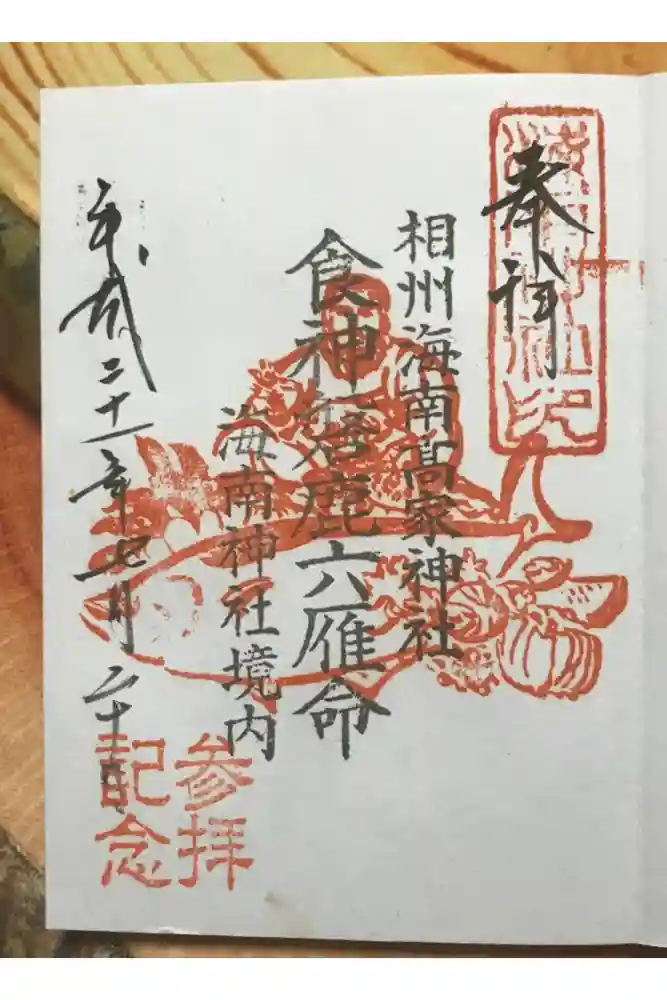 奉拝
相州海南髙家神社
食神磐鹿六雁命
海南神社境内
平成二十一年七月二十
参拝
記念